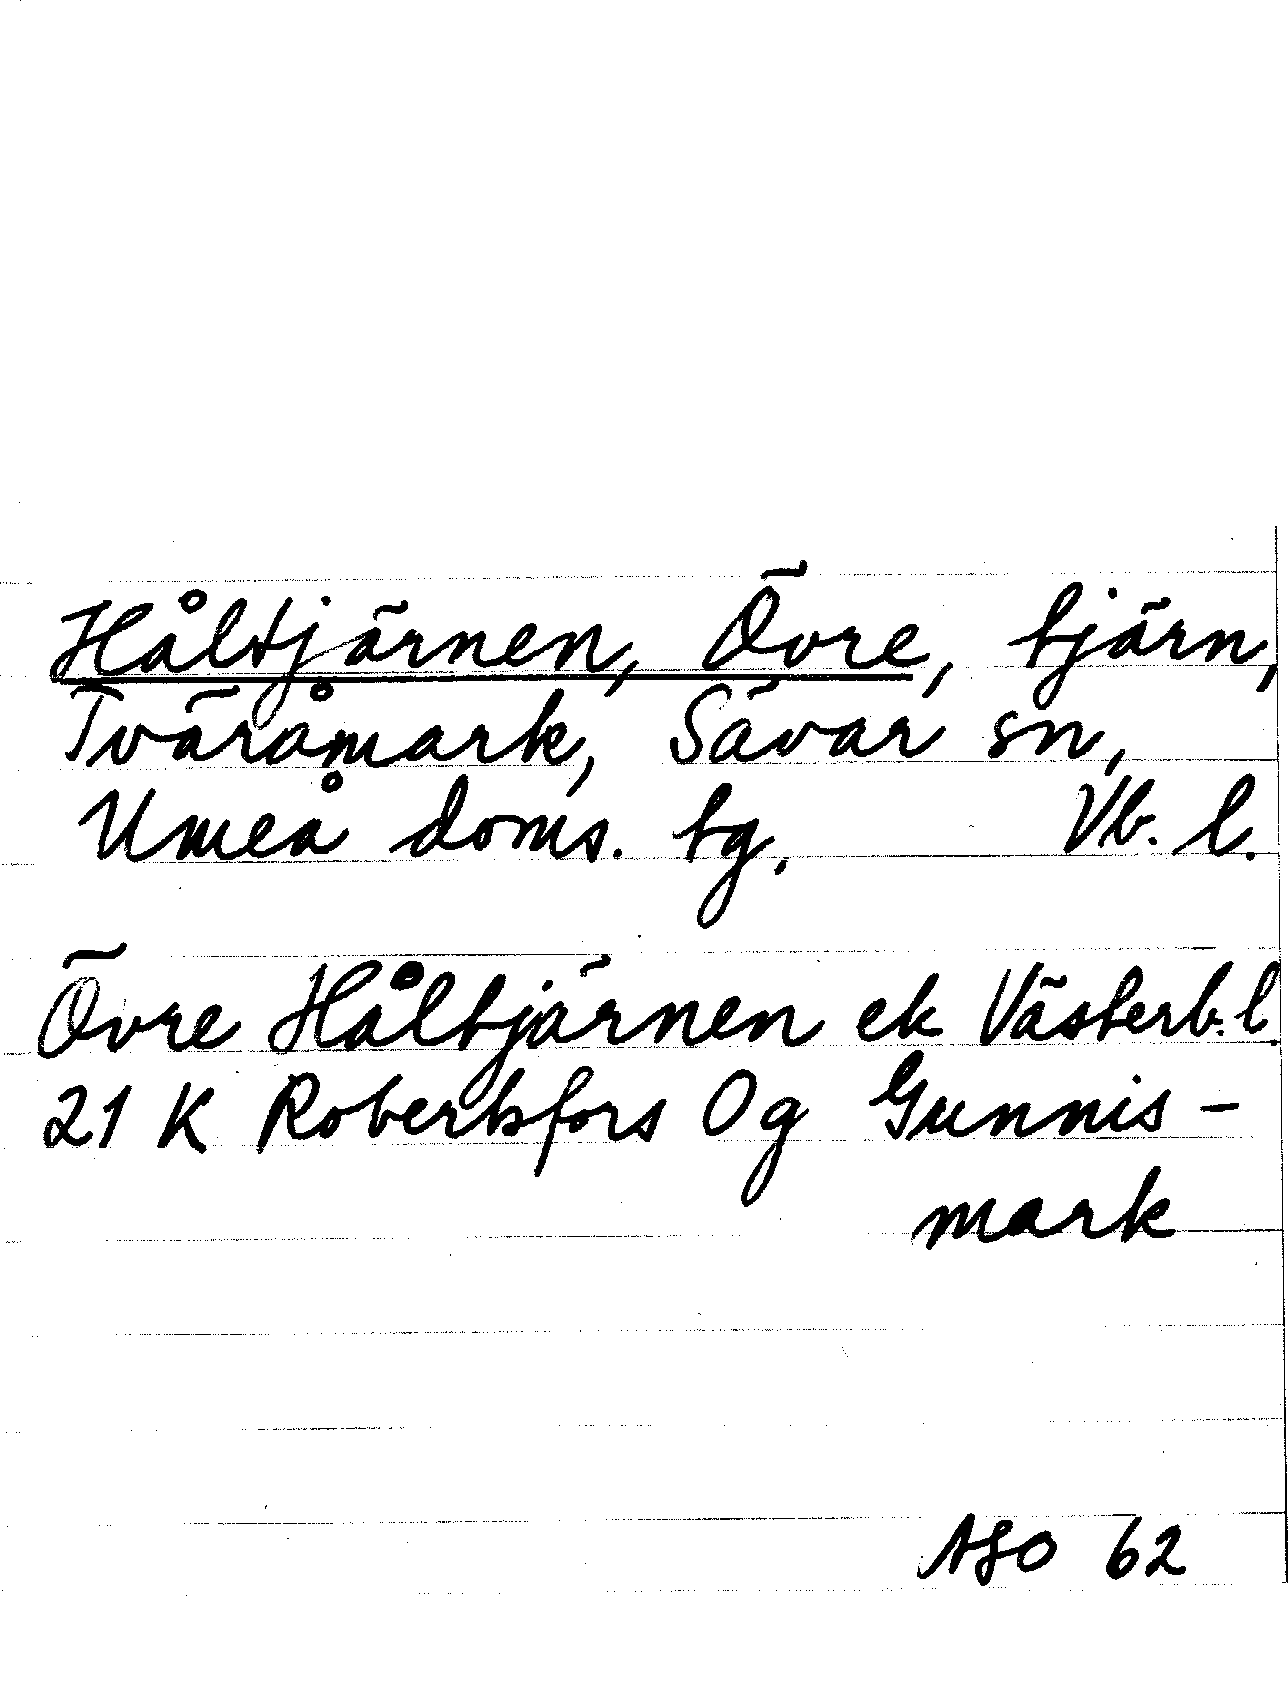 Håltjärnen, Övre, tjärn,
Tväråmark, Sävar sn,
Umeå doms. tg. Vb. l.
Övre Håltjärnen ek Västerb. l.
21 K Robertsfors Og Gunnis-
mark
ASO 62